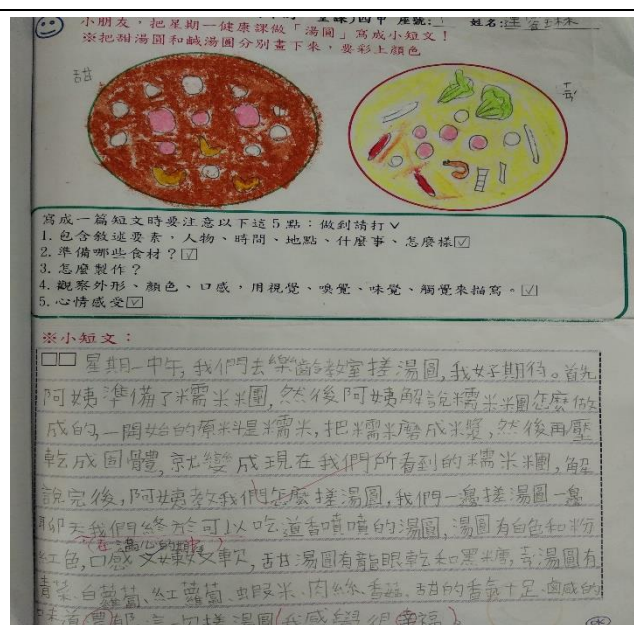 小朋友，把星期一健康課做「湯圓」寫成小短文！
※把甜湯圓和鹹湯圓分別畫下來，要彩上顏色
甜
寫成一篇短文時要注意以下這5點：做到請打ˇ
1. 包含敘述要素，人物、時間、地點、什麼事、怎麼樣☑
2. 準備哪些食材？☑
3. 怎麼製作？
4. 觀察外形、顏色、口感，用視覺、嗅覺、味覺、觸覺來描寫。☑
5. 心情感受☑
※小短文：
□□星期一中午,我們去樂齡教室搓湯圓,我好期待。首先
阿姨準備了糯米米團,然後阿姨解說糯米米團怎麼做
成的,一開始的原料是糯米,把糯米磨成米漿,然後再壓
乾成固體,就變成現在我們所看到的糯米糰,解
說完後,阿姨教我們怎麼搓湯圓,我們一邊搓湯圓一邊
聊天我們終於可以吃道香噴噴的湯圓,湯圓有白色和粉
紅色,口感又嫩又軟,甜湯圓有龍眼乾和黑糖,湯圓有
青菜、白蘿蔔、紅蘿蔔、蝦米、肉絲、香菇、甜的香氣十足,鹹的
味道 搓湯圓(我感覺很幸福)